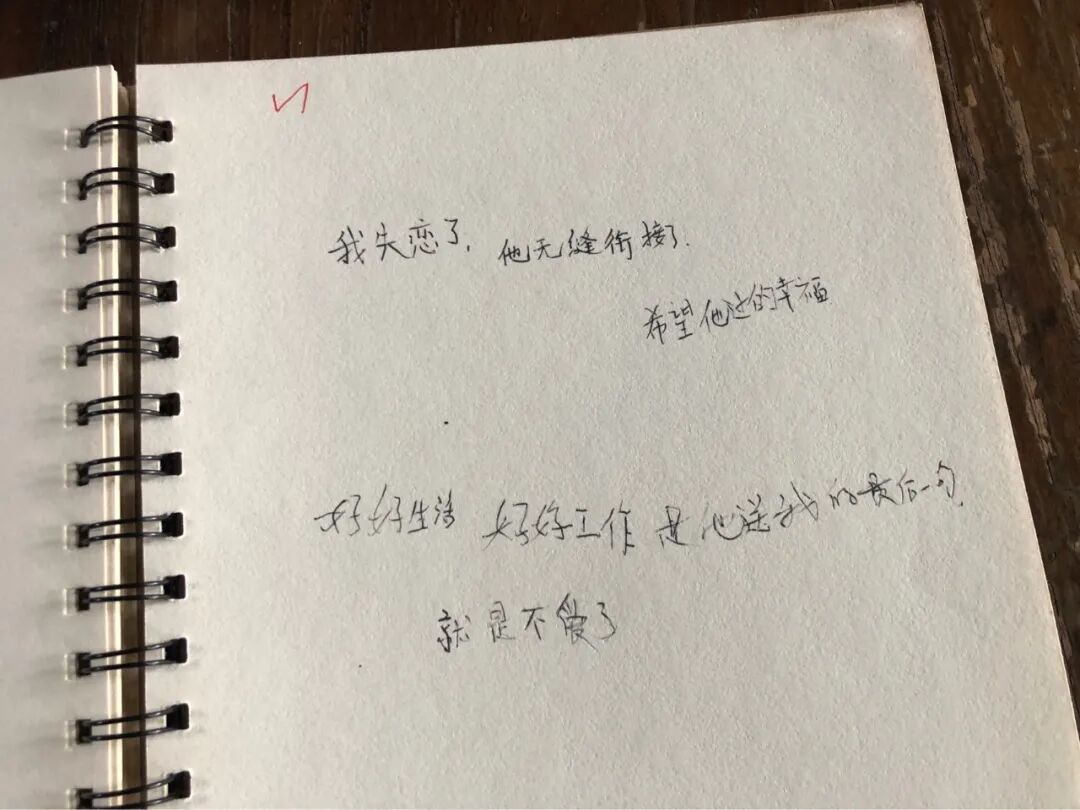 我失恋了，他无缝衔接了.
希望他过的幸福
好好生活 好好工作 是他送我的最后一句.
就是不爱了